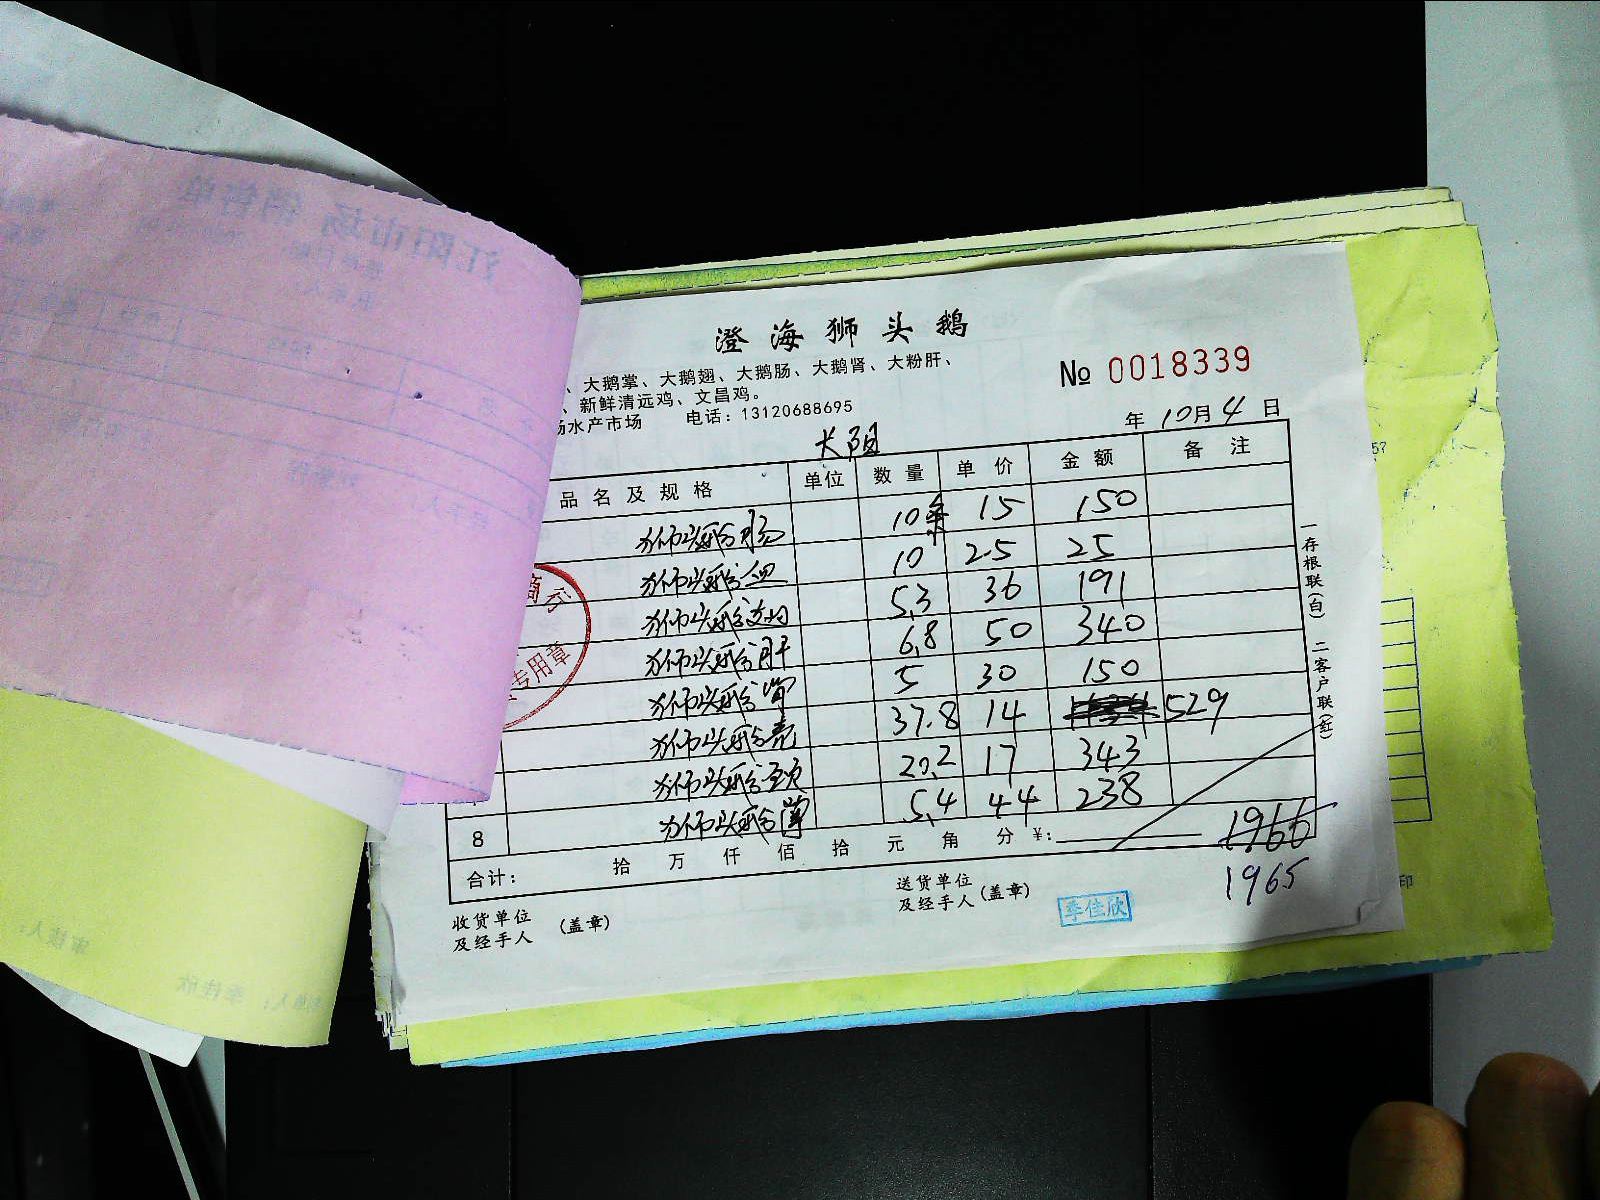 澄海狮头鹅
、大鹅掌、大鹅翅、大鹅肠、大鹅肾、大粉肝、
、新鲜清远鸡、文昌鸡。
水产市场 电话：13120688695
№ 0018339
年 10月 4 日
大阳
品名及规格 单位 数量 单价 金额 备注
狮头鹅肠 10条 15 150
狮头鹅血 10 2.5 25
狮头鹅 5.3 36 191
狮头鹅肝 6.8 50 340
狮头鹅肾 5 30 150
狮头鹅壳 37.8 14 529
狮头鹅颈 20.2 17 343
8 狮头鹅 5.4 44 238
合计： 拾 万 仟 佰 拾 元 角 分 ¥: 1966
1965
收货单位
及经手人 （盖章）
送货单位
及经手人（盖章）
季佳欣
一存根联（白） 二客户联（红）
商行
专用章
江阳市场 销售单